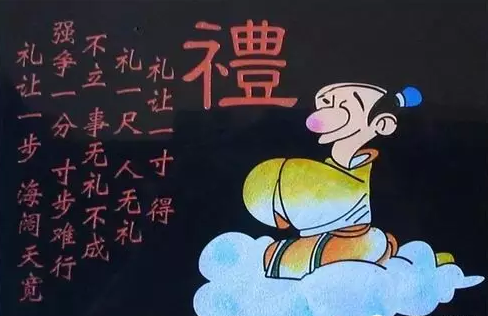 禮
礼让一寸 得
礼一尺 人无礼
不立 事无礼不成
强争一分 寸步难行
礼让一步 海阔天宽